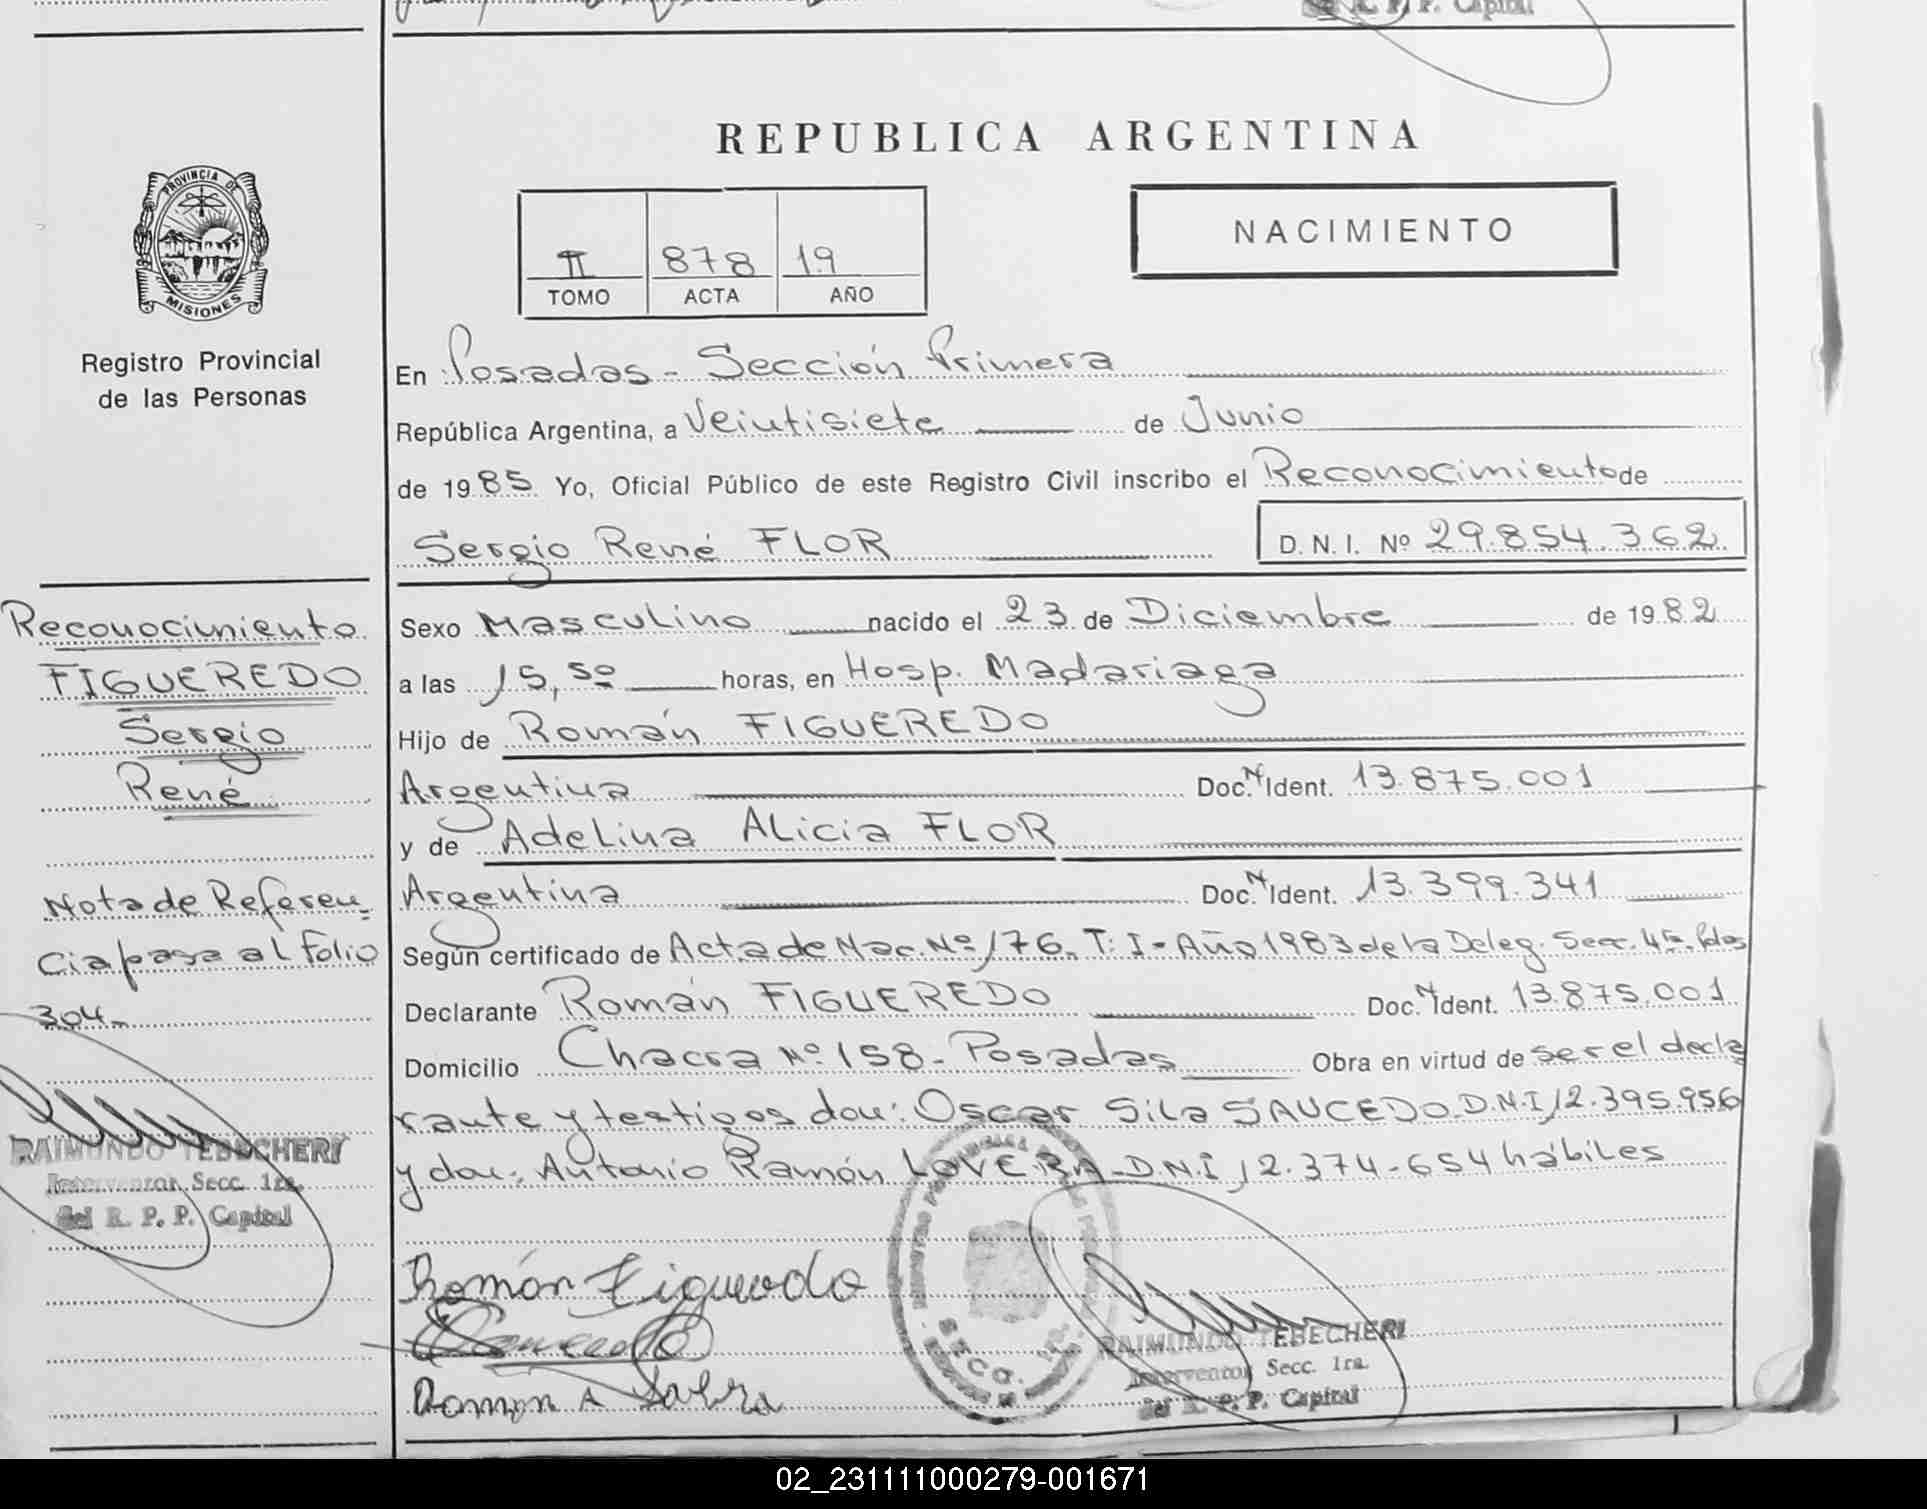 R. P. P. Capital
REPUBLICA ARGENTINA
PROVINCIA DE
MISIONES
Registro Provincial
de las Personas
II 878 19
TOMO ACTA AÑO
NACIMIENTO
En Posadas - Sección Primera
República Argentina, a Veintisiete de Junio
de 1985. Yo, Oficial Público de este Registro Civil inscribo el Reconocimiento de
Sergio René FLOR D. N. I. Nº 29.854.362
Reconocimiento
FIGUEREDO
Sergio
René
Nota de Referen
cia pasa al Folio
304-
RAIMUNDO TEBECHERI
Interventor Secc. 1ra.
del R. P. P. Capital
Sexo Masculino nacido el 23 de Diciembre de 1982
a las 15,50 horas, en Hosp. Madariaga
Hijo de Román FIGUEREDO
Argentina Doc. N Ident. 13.875.001
y de Adelina Alicia FLOR
Argentina Doc. N Ident. 13.399.341
Según certificado de Acta de Nac. Nº 176. T: I - Año 1983 de la Deleg. Secc. 4ta. Pdas
Declarante Román FIGUEREDO Doc. N Ident. 13.875.001
Domicilio Chacra Nº 158 - Posadas Obra en virtud de ser el decla
rante y testigos don: Oscar Sila SAUCEDO D.N.I 12.395.956
y don: Antonio Ramón LOVERA - D.N.I 12.374-654 hábiles
Román Figueredo
Ramon A
SECC. 1ra.
RAIMUNDO TEBECHERI
Interventor Secc. 1ra.
del R. P. P. Capital
02_231111000279-001671